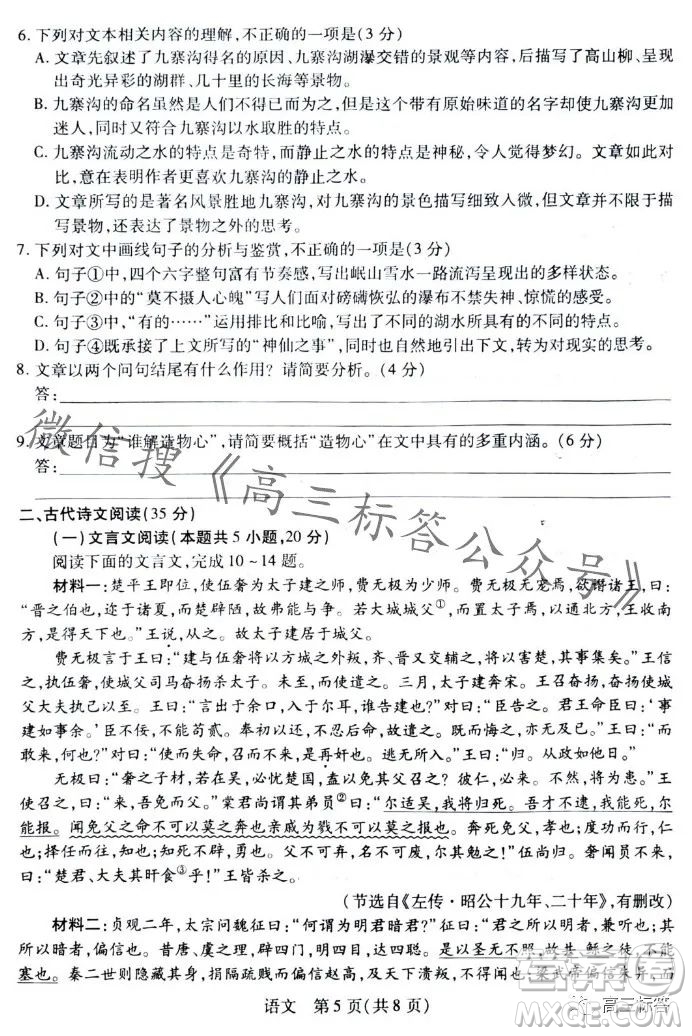 6. 下列对文本相关内容的理解,不正确的一项是(3 分)
A. 文章先叙述了九寨沟得名的原因、九寨沟湖瀑交错的景观等内容,后描写了高山柳、呈现出奇光异彩的湖群、几十里的长海等景物。
B. 九寨沟的命名虽然是人们不得已而为之的,但是这个带有原始味道的名字却使九寨沟更加迷人,同时又符合九寨沟以水取胜的特点。
C. 九寨沟流动之水的特点是奇特,而静止之水的特点是神秘,令人觉得梦幻。文章如此描写,意在表明作者更喜欢九寨沟的静止之水。
D. 文章所写的是著名风景胜地九寨沟,对景物的描写细致入微,但其主旨并不止于描写景物,还表达了景物之外的思考。
7. 下列对文中画线句子的分析与鉴赏,不正确的一项是(3 分)
A. 句子①中,四个六字整句富有节奏感,写出岷山雪水一路流泻呈现出的多样状态。
B. 句子②中的“莫不摄人心魄”写出了游人面对磅礴恢弘的瀑布不宁、惊慌的感受。
C. 句子③中,“有的……”运用排比和比喻,写出了不同的湖水所具有的不同的特点。
D. 句子④既承接了上文中所述的“神仙之事”,同时也引出下文,转为对现实的思考。
8. 文章以两个问句结尾有什么作用? 请简要分析。(4 分)
答:
9. 文章题目为“谁解造物心”,请简要概括“造物心”在文中具有的多重内涵。(6 分)
答:
二、古代诗文阅读(35 分)
(一)文言文阅读(本题共 5 小题,20 分)
阅读下面的文言文,完成 10～14 题。
材料一:楚平王即位,使伍奢为太子建之师,费无极为少师。费无极无宠焉,欲谮诸王,曰:
“晋之伯也,迩于诸夏,而楚辟陋,故弗能与争。若大城城父①,而置太子焉,以通北方,王收南方,是得天下也。”王说,从之。故太子建居于城父。
费无极言于王曰:“建与伍奢将以方城之外叛,齐、晋又交辅之,将以害楚,其事集矣。”王信之,执伍奢,使城父司马奋扬杀太子。未至,而使遣之。三月,太子建奔宋。王召奋扬,奋扬使城父大夫执已以至。王曰:“言出于余口,入于尔耳,谁告建也?”对曰:“臣告之。君王命臣曰:‘事建如事余。’臣不佞,不能苟贰。奉初以还,不忍后命,故遣之。既而悔之,亦无及已。”王曰:“而敢来,何也?”对曰:“使而失命,召而不来,是再奸也。逃无所入。”王曰:“归。从政如他日。”
无极曰:“奢之子材,若在吴,必忧楚国,盍以免其父召之? 彼仁,必来。不然,将为患。”王使召之,曰:“来,吾免而父。”棠君尚谓其弟员②曰:“尔适吴,我将归死。吾才不逮,我能死,尔能报。闻免父之命不可以莫之奔也亲戚为戮不可以莫之报也。奔死免父,孝也;度功而行,仁也;择任而往,知也;知死不辟,勇也。父不可弃,名不可废,尔其勉之!”伍尚归。奢闻员不来,曰:“楚君、大夫其旰食③乎!”王皆杀之。
(节选自《左传·昭公十九年、二十年》,有删改)
材料二:贞观二年,太宗问魏征曰:“何谓为明君暗君?”征曰:“君之所以明者,兼听也;其所以暗者,偏信也。昔唐、虞之理,辟四门,明四目,达四聪。是以圣无不照,故共、鲧之徒,不能塞也。秦二世则隐藏其身,捐隔疏贱而偏信赵高,及天下溃叛,不得闻也。梁武帝偏信朱异,而
语文 第 5 页(共 8 页)
微信搜《高三标答公众号》
高三标答